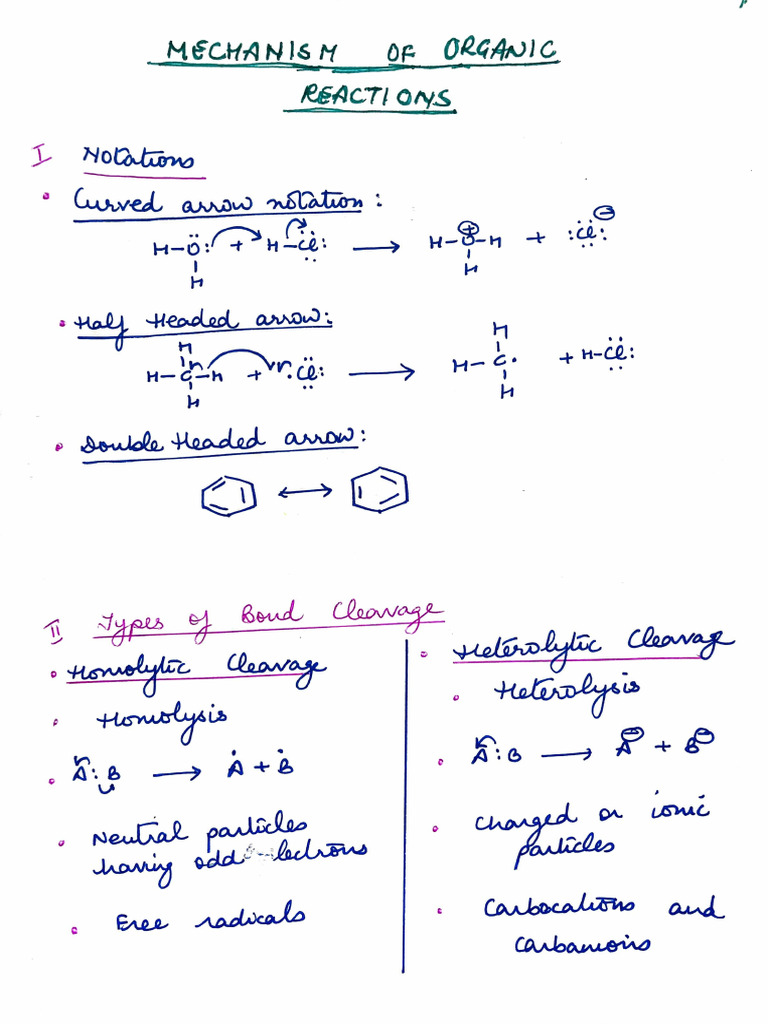 MECHANISM OF ORGANIC
REACTIONS
I Notations
• Curved arrow notation:
H–Ö: + H–Cl: → H–O–H + :Cl:
H ⊕ H ⊖
• Half Headed arrow:
H H
H–C–H + .Cl: → H–C. + H–Cl:
H H
• Double Headed arrow:
↔
II Types of Bond Cleavage
• Homolytic Cleavage
• Homolysis
• A:B → Ȧ + Ḃ
• Neutral particles
having odd electrons
• Free radicals
• Heterolytic Cleavage
• Heterolysis
• A:B → A⊖ + B⊖
• Charged or ionic
particles
• Carbocations and
Carbanions